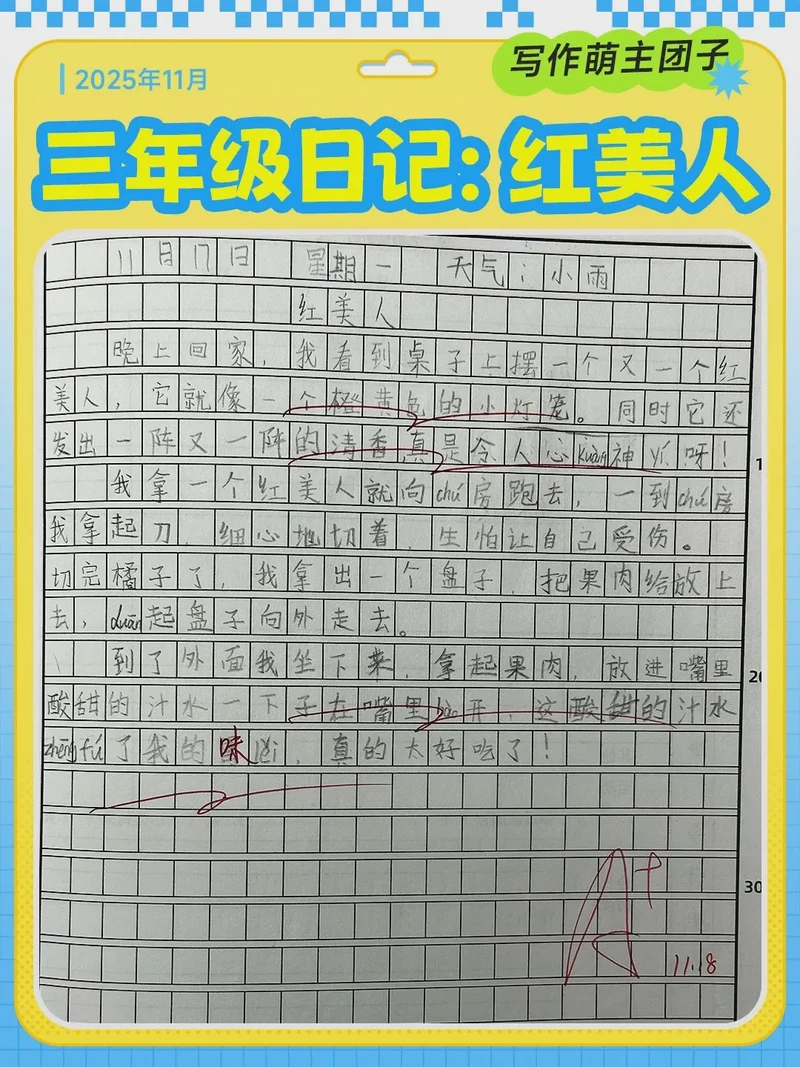 2025年11月
写作萌主团子
三年级日记:红美人
11月17日 星期一 天气:小雨
红美人
晚上回家,我看到桌子上摆一个又一个红
美人,它就像一个橙黄色的小灯笼。同时它还
发出一阵又一阵的清香真是令人心kuàng神yí呀!
我拿一个红美人就向chú房跑去,一到chú房
我拿起刀,细心地切着,生怕让自己受伤。
切完橘子了,我拿出一个盘子,把果肉给放上
去,duān起盘子向外走去。
到了外面我坐下来,拿起果肉,放进嘴里
酸甜的汁水一下子在嘴里bào开,这酸甜的汁水
zhēng fú了我的味lěi,真的太好吃了!
10
20
30
A+
11.18